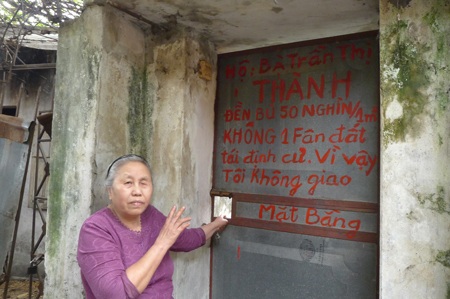 Hộ: Bà Trần Thị
THÀNH
ĐỀN BÙ 50 NGHÌN/1m²
KHÔNG 1 Fân đất
tái định cư. Vì vậy
Tôi Không giao
Mặt Bằng